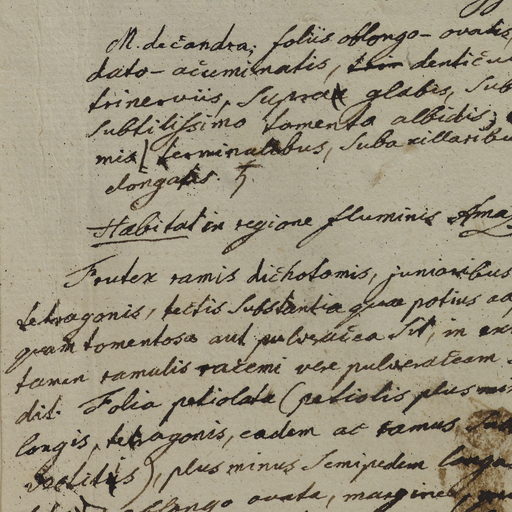 M. decandra; foliis oblongo-ovatis,
dato-acuminatis, denticu
trinerviis, supra glabis, sub
subtilissimo tomento albidis;
mis terminalibus, subaxillaribu
elongatis. ♄.
Habitat in regione fluminis Ama
Frutex ramis dichotomis, junioribus
tetragonis, tectis substantia quae potius ad
quam tomentosa aut pulveracea sit, in ex
tamen ramulis racemi vere pulverateam
dit. Folia petiolata (petiolis plus mi
longis, tetragonis, eadem ac ramus sub
vectitiis), plus minus semipedem longa
oblongo ovata, margine,